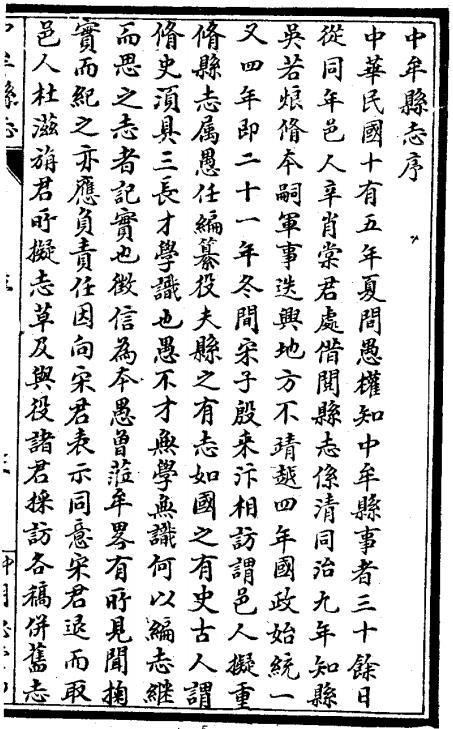 中牟縣志序
中華民國十有五年夏間愚權知中牟縣事者三十餘日
從同年邑人辛肖棠君處借閱縣志係清同治九年知縣
吳若烺脩本嗣軍事迭興地方不靖越四年國政始統一
又四年即二十一年冬間宋子殷来汴相訪謂邑人擬重
脩縣志属愚任編纂役夫縣之有志如國之有史古人謂
脩史須具三長才學識也愚不才無學無識何以編志継
而思之志者記實也徵信為本愚曽蒞牟畧有所見聞掬
實而紀之亦應負責任因向宋君表示同意宋君退而取
邑人杜滋旃君所擬志草及與役諸君採訪各稿併舊志
中牟縣志